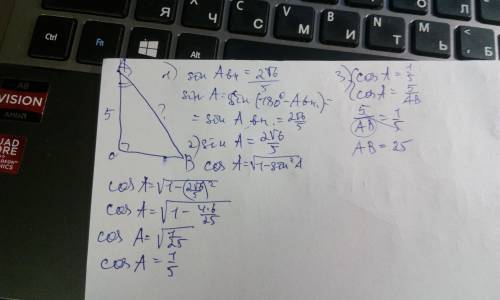 Ctrl
Fn
Alt
Я
Ч
С
М
И
Т
Ь
AMD
VISION
RADEON
GRAPHICS
A
5
?
C
B
1) sin A вн = 2√6/5
sin A = sin (180° - A вн.) =
= sin A вн. = 2√6/5
2) sin A = 2√6/5
cos A = √1-sin²A
cos A = √1-(2√6/5)²
cos A = √1 - 4·6/25
cos A = √1/25
cos A = 1/5
3) { cos A = 1/5
{ cos A = 5/AB
5/AB = 1/5
AB = 25